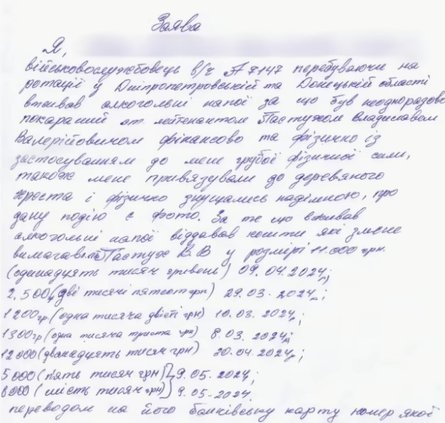 Заява
Я,
військовослужбовець в/ч А 7147 перебуваючи на
ротації у Дніпропетровській та Донецькій області
вживав алкогольні напої за що був неодноразово
покараний от лейтенантом Пастухом Владиславом
Валерійовичом фінансово та фізично із
застосуванням до мене грубої фізичної сили,
також мене привязували до деревяного
хреста і фізично знущались наді мною, про
дану подію є фото. За те що вживав
алкогольні напої віддавав кошти які змене
вимагав Пастух В.В у розмірі 11 000 грн.
(одинадцять тисяч гривень) 09.04 2024;
2.500 (дві тисячі пятсот грн) 29.03. 2024;
1200гр (одна тисяча двісті грн) 10.03. 2024;
1300гр (одна тисяча триста грн) 8.03. 2024;
12000 (дванадцять тисяч грн) 20.04.2024;
5000 (п'ять тисяч грн) 9.05. 2024;
6000 (шість тисяч грн) 9.05-2024.
переводом на його банківську карту номер якої